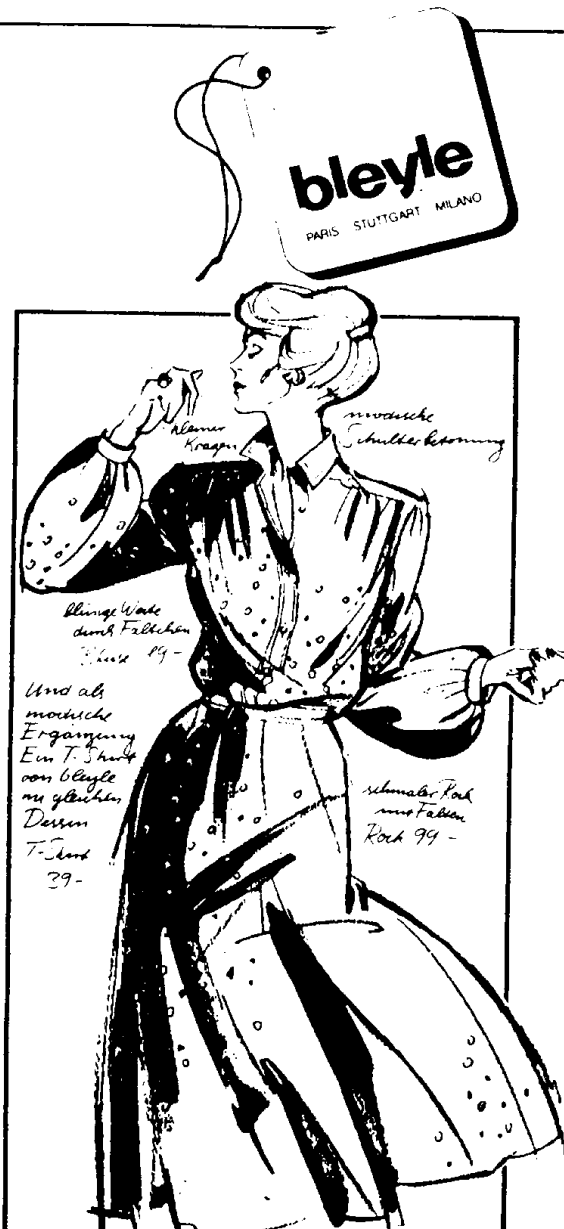 bleyle
PARIS STUTTGART MILANO
kleiner
Kragen
modische
Schulterbetonung
durch Fältchen
Bluse 89-
Und als
modische
Ergänzung
Ein T-Shirt
von bleyle
im gleichen
Dessin
T-Shirt
39-
schmaler Rock
mit Falten
Rock 99-